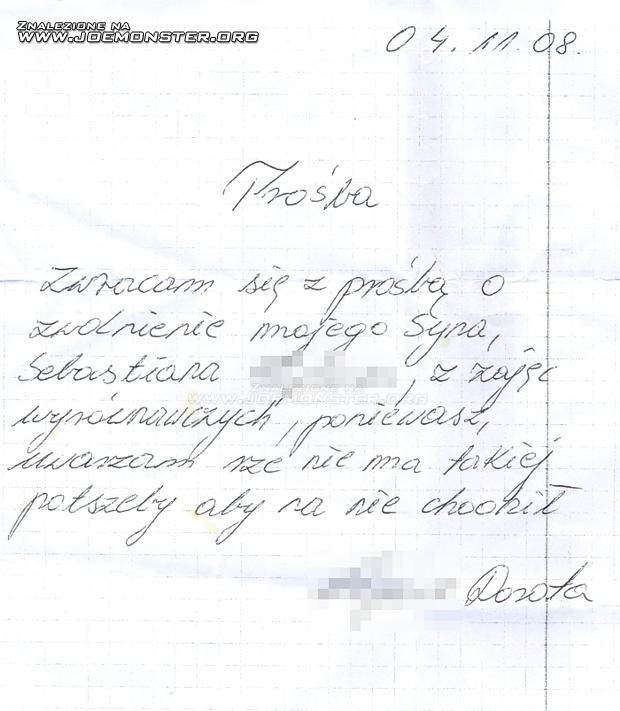 Znalezione na
www.JoeMonster.org
04.11.08.
Prośba
Zwracam się z prośbą o
zwolnienie mojego Syna,
Sebastiana , z zajęc
wyrównawczych, poniewasz,
uwarzam rze nie ma takiej
potszeby aby na nie chodził
Znalezione na
www.JoeMonster.org
Dorota